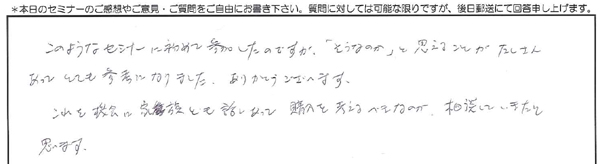 ＊本日のセミナーのご感想やご意見・ご質問をご自由にお書き下さい。質問に対しては可能な限りですが、後日郵送にて回答申し上げます。
このようなセミナーに初めて参加したのですが、「そうなのか」と思えることがたくさん
あってとても参考になりました。ありがとうございます。
これを機会に家族とも話しあって購入を考えるべきなのか、相談していきたいと
思います。